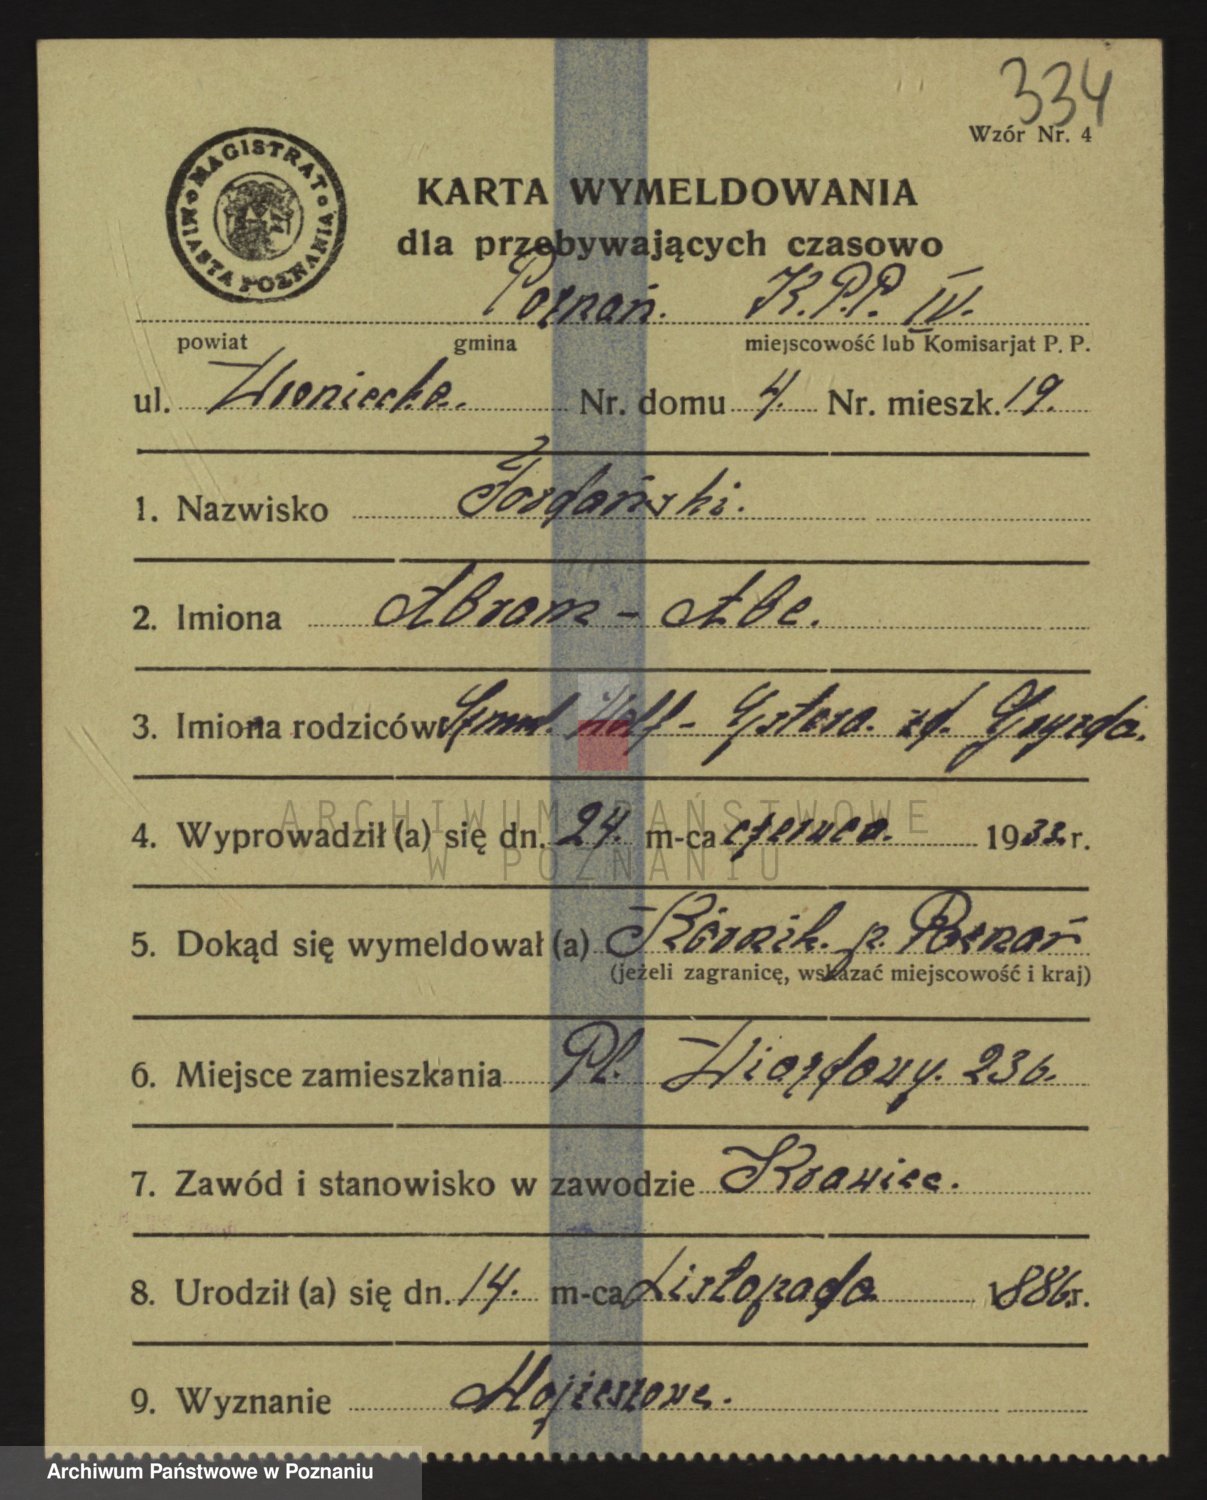 334
Wzór Nr. 4
MAGISTRAT MIASTA POZNANIA
KARTA WYMELDOWANIA
dla przebywających czasowo
Poznań. K.P.P. IV.
powiat gmina miejscowość lub Komisarjat P. P.
ul. Wroniecka. Nr. domu 4. Nr. mieszk. 19.
1. Nazwisko Jordański.
2. Imiona Abram - Abe.
3. Imiona rodziców Wolf - Estera. zd.
4. Wyprowadził (a) się dn. 24. m-ca czerwca. 1932. r.
ARCHIWUM PAŃSTWOWE
W POZNANIU
5. Dokąd się wymeldował (a) Kórnik. p. Poznań
(jeżeli zagranicę, wskazać miejscowość i kraj)
6. Miejsce zamieszkania Pl. 236.
7. Zawód i stanowisko w zawodzie Krawiec.
8. Urodził (a) się dn. 14. m-ca Listopada 1886 r.
9. Wyznanie Mojżeszowe.
Archiwum Państwowe w Poznaniu